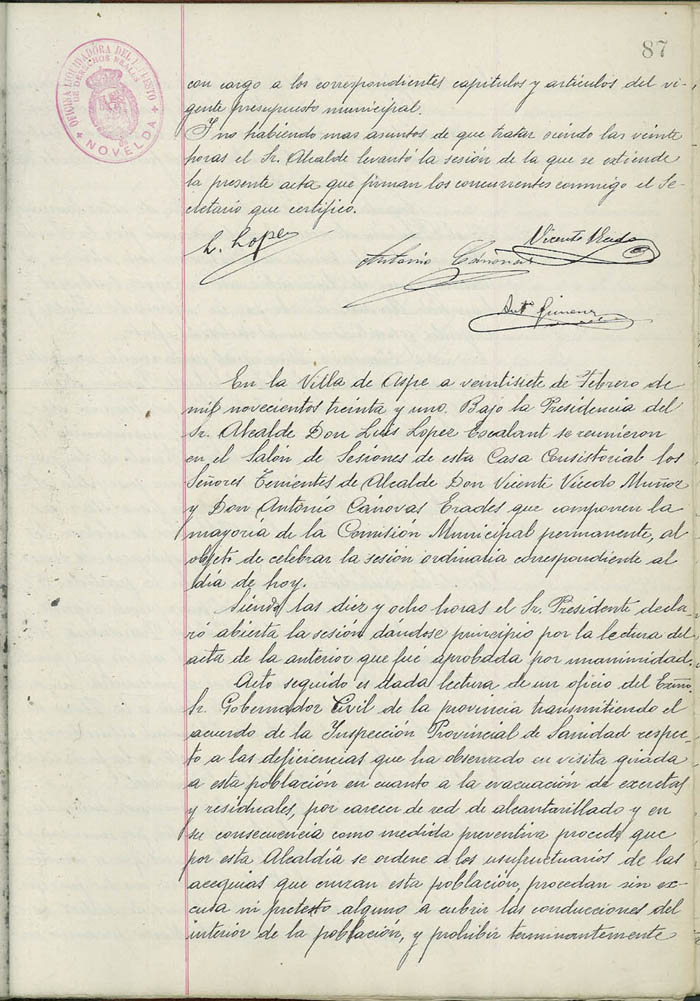 87
OFICINA LIQUIDADORA DEL IMPUESTO
DE DERECHOS REALES
NOVELDA
con cargo a los correspondientes capitulos y articulos del vi-
gente presupuesto municipal.
Y no habiendo mas asuntos de que tratar siendo las veinte
horas el Sr. Alcalde levantó la sesión de la que se extiende
la presente acta que firman los concurrentes conmigo el Se-
cretario que certifico.
L. Lopez
Antonio Cánovas
Vicente
Antº Gimenez
En la Villa de Aspe a veintisiete de Febrero de
mil novecientos treinta y uno. Bajo la Presidencia del
Sr. Alcalde Don Luis Lopez Escalant se reunieron
en el Salón de Sesiones de esta Casa Consistorial los
Señores Tenientes de Alcalde Don Vicente Vicedo Muñoz
y Don Antonio Cánovas Erades que componen la
mayoría de la Comisión Municipal permanente, al
objeto de celebrar la sesión ordinaria correspondiente al
día de hoy.
Siendo las diez y ocho horas el Sr. Presidente decla-
ró abierta la sesión dándose principio por la lectura del
acta de la anterior que fué aprobada por unanimidad.
Acto seguido es dada lectura de un oficio del Exmo
Sr. Gobernador Civil de la provincia transmitiendo el
acuerdo de la Inspección Provincial de Sanidad respec-
to a las deficiencias que ha observado en visita girada
a esta población en cuanto a la evacuación de excretas
y residuales, por carecer de red de alcantarillado y en
su consecuencia como medida preventiva procede que
por esta Alcaldía se ordene a los usufructuarios de las
acequias que cruzan esta población, procedan sin ex-
cusa ni pretexto alguno a cubrir las conducciones del
interior de la población, y prohibir terminantemente